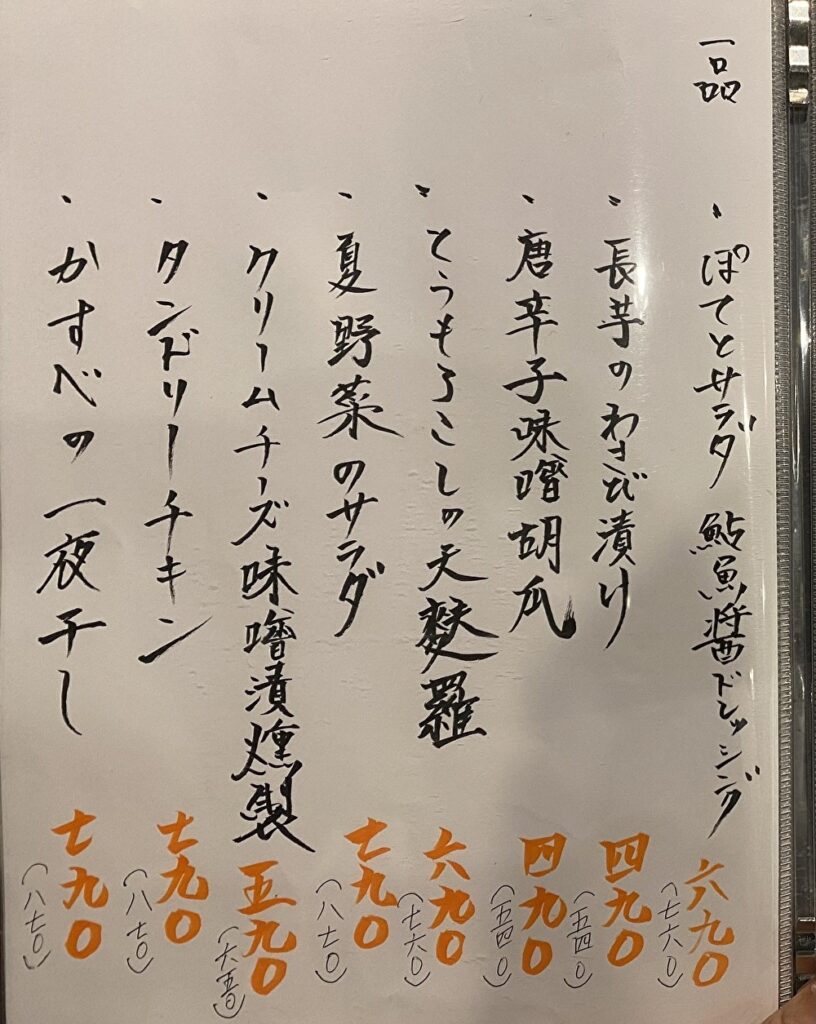 一品
・ぽてとサラダ 鮎魚醤ドレッシング 六九〇(七六〇)
・長芋のわさび漬け 四九〇(五四〇)
・唐辛子味噌胡瓜 四九〇(五四〇)
・とうもろこしの天麩羅 六九〇(七六〇)
・夏野菜のサラダ 七九〇(八七〇)
・クリームチーズ味噌漬燻製 五九〇(六五〇)
・タンドリーチキン 七九〇(八七〇)
・かすべの一夜干し 七九〇(八七〇)